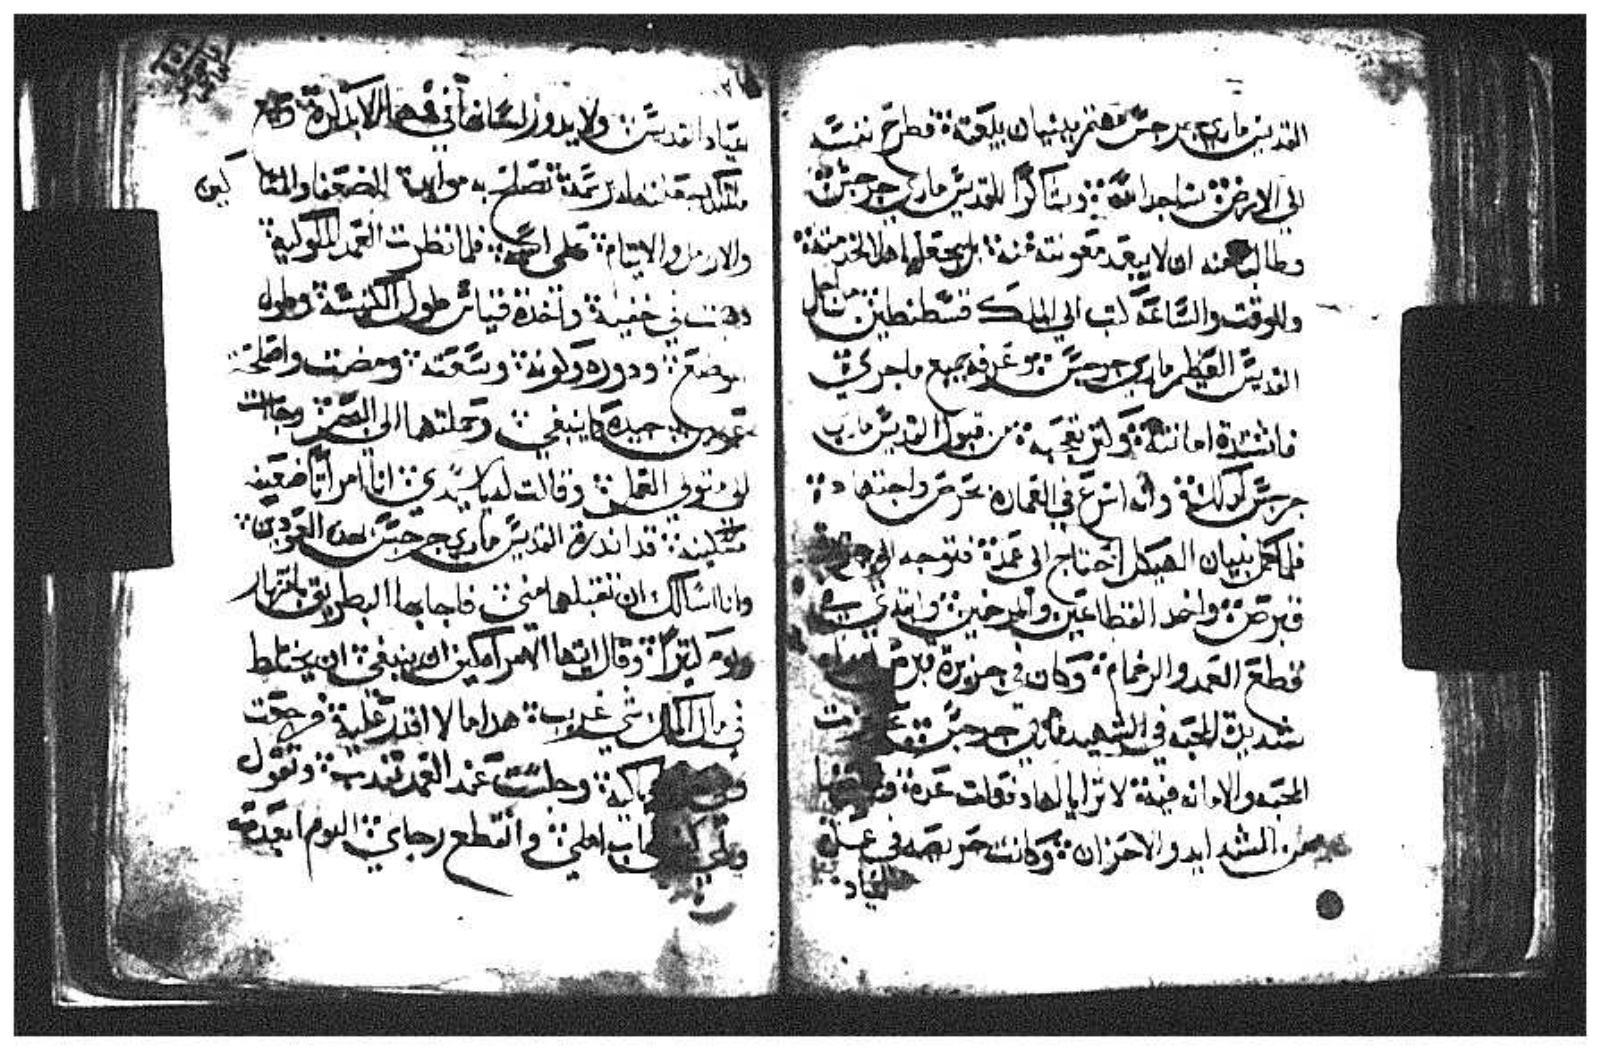 القديس ماري جرجس مهتم ببنيان بيعته فطرح نفسه
الي الارض ساجدا لله وشاكرا للقديس ماري جرجس
وطالبا منه ان لا يبعد معونته عنه بل يجعله اهلا لخدمته
وللوقت والساعة كتب الي الملك قسطنطين من اجل
القديس العظيم ماري جرجس وعرفه بجميع ما جري
فاشتدة امانته وكتر تعجبه من قبول القديس ماري
جرجس لذلك وانه اسرع في العمارة بحرص واجتهاد
فلما كمل بنيان الهيكل احتاج الي عمد فتوجه الي
قبرص واخد القطاعين والمرخمين وابتدي في
قطع العمد والرخام وكان في جزيرة قبرص
شديدة المحبه في الشهيد ماري جرجس
المحبه والامانه فيه لانها
من الشدايد والاحزان وكانت حريصه في عمل
اعياد
اعياد القديس ولا يدور لسانها في فمها الا بذكره
تصلح به مواساة للضعفا والمسا كين
والارمل والايتام علي اسمه فلما نظرت العمد الملوكية
في خفية واخدة قياس طول الكنيسة وطول
الموضع ودوره وكونه وسعته ومضت واصلحة
عمودين جيدة كما ينبغي وحملتها الي البحر وجات
الي متولي العمل وقالت له يا سيدي انا امراة ضعيفه
مسكينة قد اندرة للقديس ماري جرجس هدة العمودين
وانا اسالك ان تقبلهما مني فاجابها البطريق بانتهار
وقال ايتها الامراه كيف ان ينبغي ان يختلط
في مال الملك شي غريب هدا ما لا اقدر عليه فرجعت
باكية وجلست عند العمد تندب وتقول
خاب املي وانقطع رجاي اليوم ابعدة